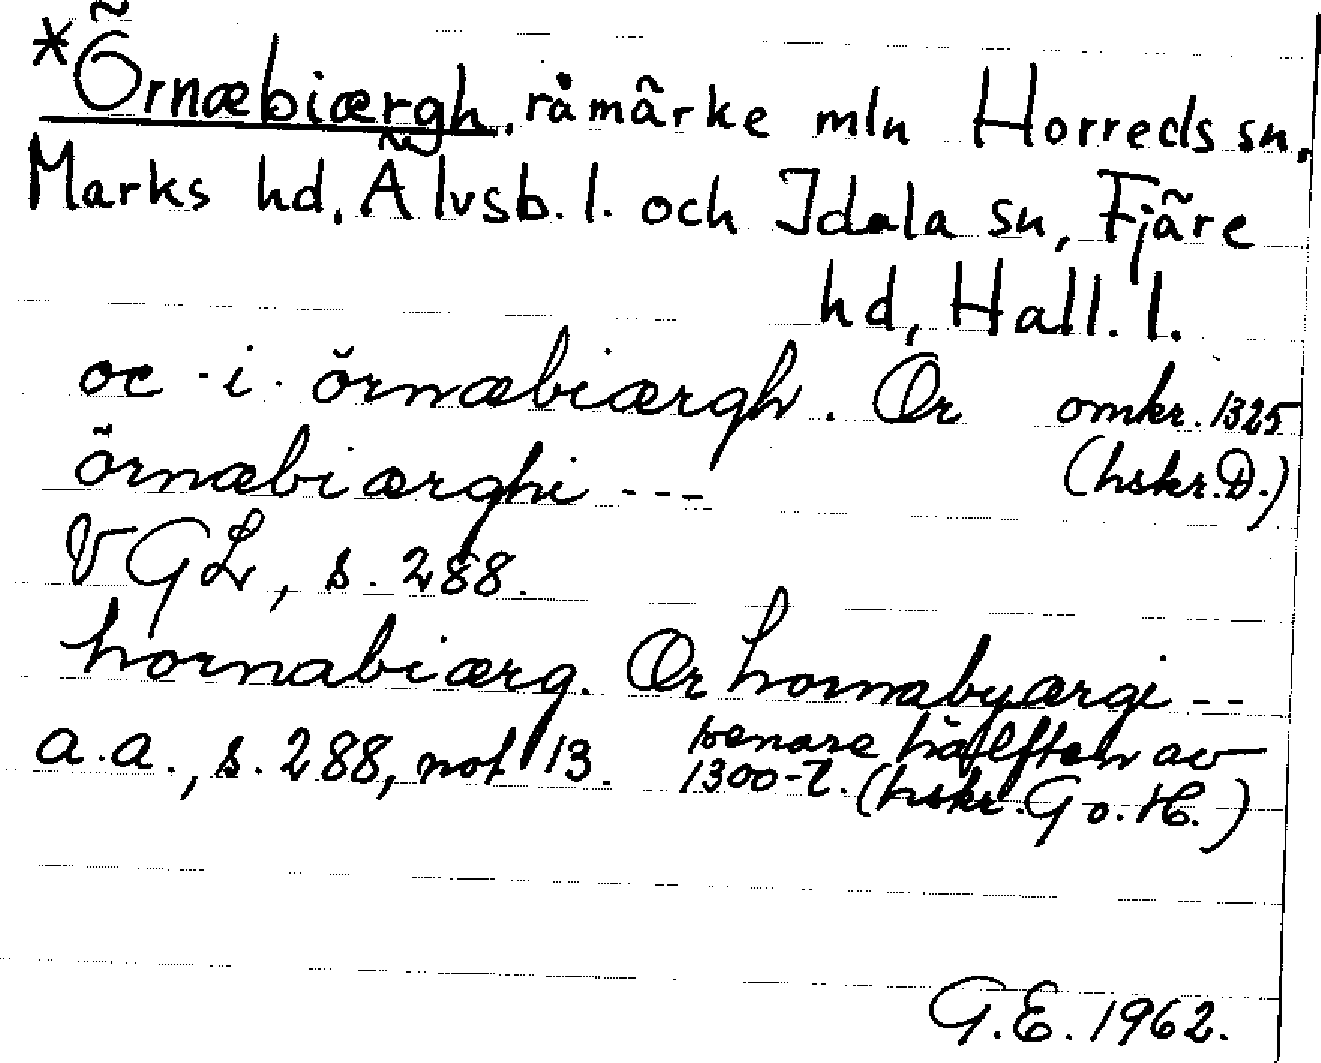 *Örnæbiærgh, råmärke mln Horreds sn,
Marks hd, Älvsb. l. och Idala sn, Fjäre
hd, Hall. l.
oc · i · örnæbiærgh. Ör omkr. 1325
örnæbiærghi --- (hskr. D.)
VGL, s. 288.
hornabiærg. Ör hornabyærgi --
a.a., s. 288, not 13. senare hälften av
1300-t. (hskr. G o. H.)
G.E. 1962.